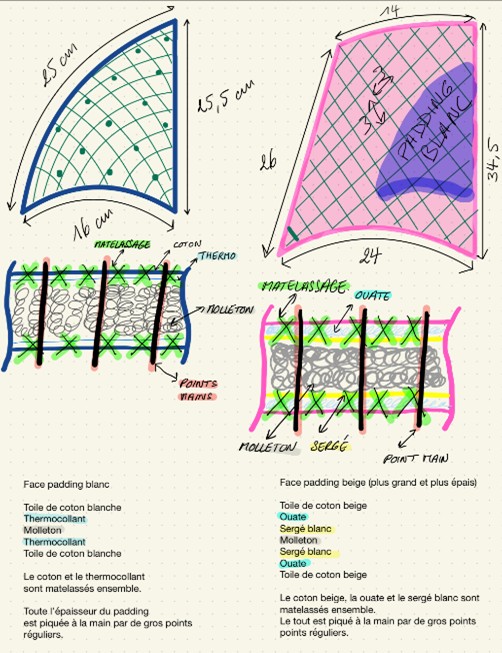 25 cm
25,5 cm
16 cm
14
3
3
PADDING
BLANC
26
34,5
24
MATELASSAGE
COTON
THERMO
MOLLETON
POINTS
MAINS
MATELASSAGE
OUATE
MOLLETON
SERGÉ
POINT MAIN
Face padding blanc
Toile de coton blanche
Thermocollant
Molleton
Thermocollant
Toile de coton blanche
Le coton et le thermocollant
sont matelassés ensemble.
Toute l'épaisseur du padding
est piquée à la main par de gros points
réguliers.
Face padding beige (plus grand et plus épais)
Toile de coton beige
Ouate
Sergé blanc
Molleton
Sergé blanc
Ouate
Toile de coton beige
Le coton beige, la ouate et le sergé blanc sont
matelassés ensemble.
Le tout est piqué à la main par de gros points
points réguliers.